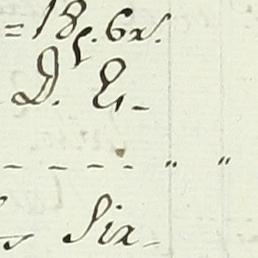 = 18. 6x.
D. E. -
- - - - - " "
Six -